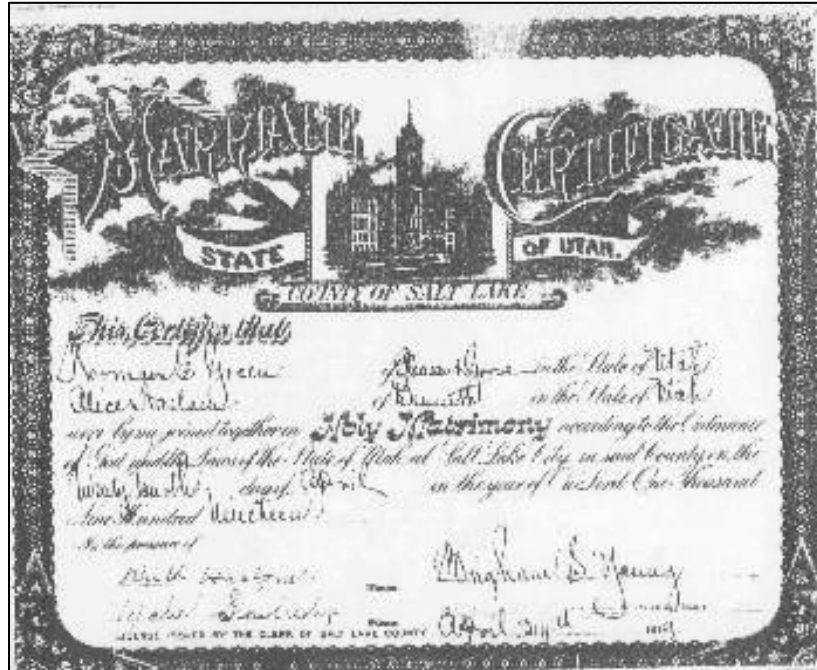 MARRIAGE CERTIFICATE
STATE OF UTAH.
COUNTY OF SALT LAKE
This Certifies that
Norman C Green of Pleasant Grove in the State of Utah
Alice of in the State of Utah
were by me joined together in Holy Matrimony according to the Ordinance
of God and the Laws of the State of Utah at Salt Lake City in said County on the
Twenty fourth day of April in the year of Our Lord One Thousand
Nine Hundred Nineteen
In the presence of
Brigham S. Young
April 24th 1919
LICENSE ISSUED BY THE CLERK OF SALT LAKE COUNTY